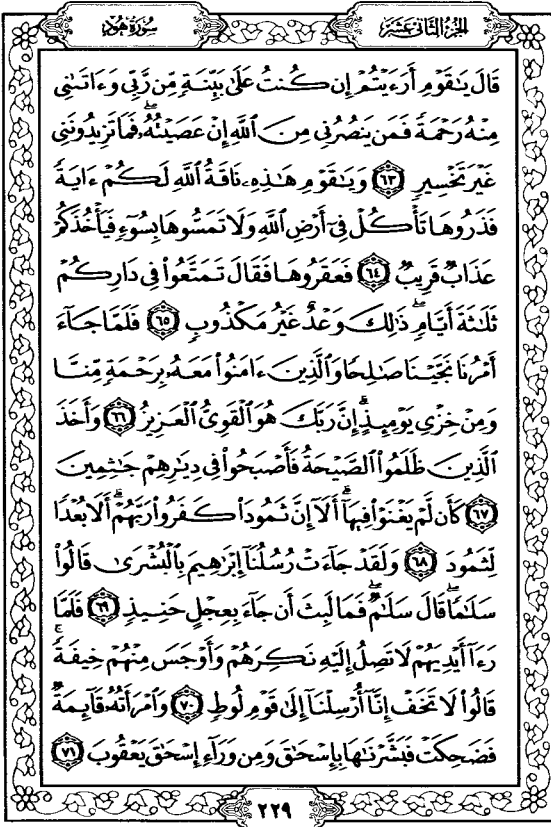 الجزء الثاني عشر
سورة هود
قَالَ يَٰقَوْمِ أَرَءَيْتُمْ إِن كُنتُ عَلَىٰ بَيِّنَةٍ مِّن رَّبِّى وَءَاتَىٰنِى
مِنْهُ رَحْمَةً فَمَن يَنصُرُنِى مِنَ ٱللَّهِ إِنْ عَصَيْتُهُۥۖ فَمَا تَزِيدُونَنِى
غَيْرَ تَخْسِيرٍ ۝٦٣ وَيَٰقَوْمِ هَٰذِهِۦ نَاقَةُ ٱللَّهِ لَكُمْ ءَايَةً
فَذَرُوهَا تَأْكُلْ فِىٓ أَرْضِ ٱللَّهِ وَلَا تَمَسُّوهَا بِسُوٓءٍ فَيَأْخُذَكُمْ
عَذَابٌ قَرِيبٌ ۝٦٤ فَعَقَرُوهَا فَقَالَ تَمَتَّعُوا۟ فِى دَارِكُمْ
ثَلَٰثَةَ أَيَّامٍۖ ذَٰلِكَ وَعْدٌ غَيْرُ مَكْذُوبٍ ۝٦٥ فَلَمَّا جَآءَ
أَمْرُنَا نَجَّيْنَا صَٰلِحًا وَٱلَّذِينَ ءَامَنُوا۟ مَعَهُۥ بِرَحْمَةٍ مِّنَّا
وَمِنْ خِزْىِ يَوْمِئِذٍۗ إِنَّ رَبَّكَ هُوَ ٱلْقَوِىُّ ٱلْعَزِيزُ ۝٦٦ وَأَخَذَ
ٱلَّذِينَ ظَلَمُوا۟ ٱلصَّيْحَةُ فَأَصْبَحُوا۟ فِى دِيَٰرِهِمْ جَٰثِمِينَ
۝٦٧ كَأَن لَّمْ يَغْنَوْا۟ فِيهَآۗ أَلَآ إِنَّ ثَمُودَا۟ كَفَرُوا۟ رَبَّهُمْۗ أَلَا بُعْدًا
لِّثَمُودَ ۝٦٨ وَلَقَدْ جَآءَتْ رُسُلُنَآ إِبْرَٰهِيمَ بِٱلْبُشْرَىٰ قَالُوا۟
سَلَٰمًاۖ قَالَ سَلَٰمٌۖ فَمَا لَبِثَ أَن جَآءَ بِعِجْلٍ حَنِيذٍ ۝٦٩ فَلَمَّا
رَءَآ أَيْدِيَهُمْ لَا تَصِلُ إِلَيْهِ نَكِرَهُمْ وَأَوْجَسَ مِنْهُمْ خِيفَةًۚ
قَالُوا۟ لَا تَخَفْ إِنَّآ أُرْسِلْنَآ إِلَىٰ قَوْمِ لُوطٍ ۝٧٠ وَٱمْرَأَتُهُۥ قَآئِمَةٌ
فَضَحِكَتْ فَبَشَّرْنَٰهَا بِإِسْحَٰقَ وَمِن وَرَآءِ إِسْحَٰقَ يَعْقُوبَ ۝٧١
٢٢٩